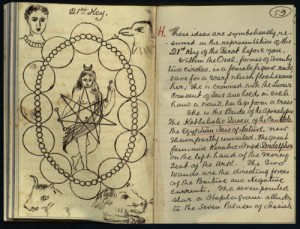 21st Key.
59
These ideas are symbolically re-
sumed in the representation of the
21st Key of the Tarot before you.
Within the Oval, formed of Seventy
two circles, is a female figure nude
save for a scarf which floats round
her. She is crowned with the Lunar
Crescent of Isis and holds in each
hand a wand, her legs form a cross
She is the Bride of the Apocalypse
the Kabbalistic Queen of the Canticles
the Egyptian Isis of Nature, now
shewn partly unveiled, the great
feminine Kerubic Angel Sandalphon
on the left hand of the Mercy
Seat of the Ark. The two
Wands are the directing forces
of the Positive and Negative
currents. The seven pointed
Star or Heptagram alludes
to the Seven Palaces of Assiah